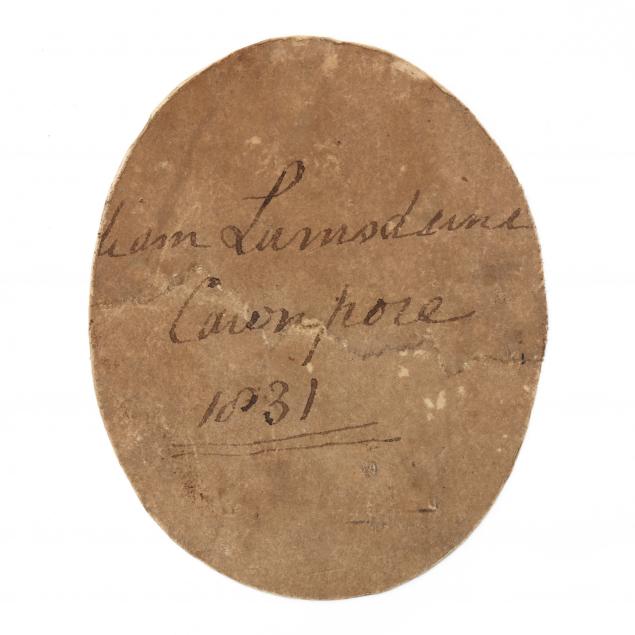 liam Lumsdeine
Cawnpore
1831